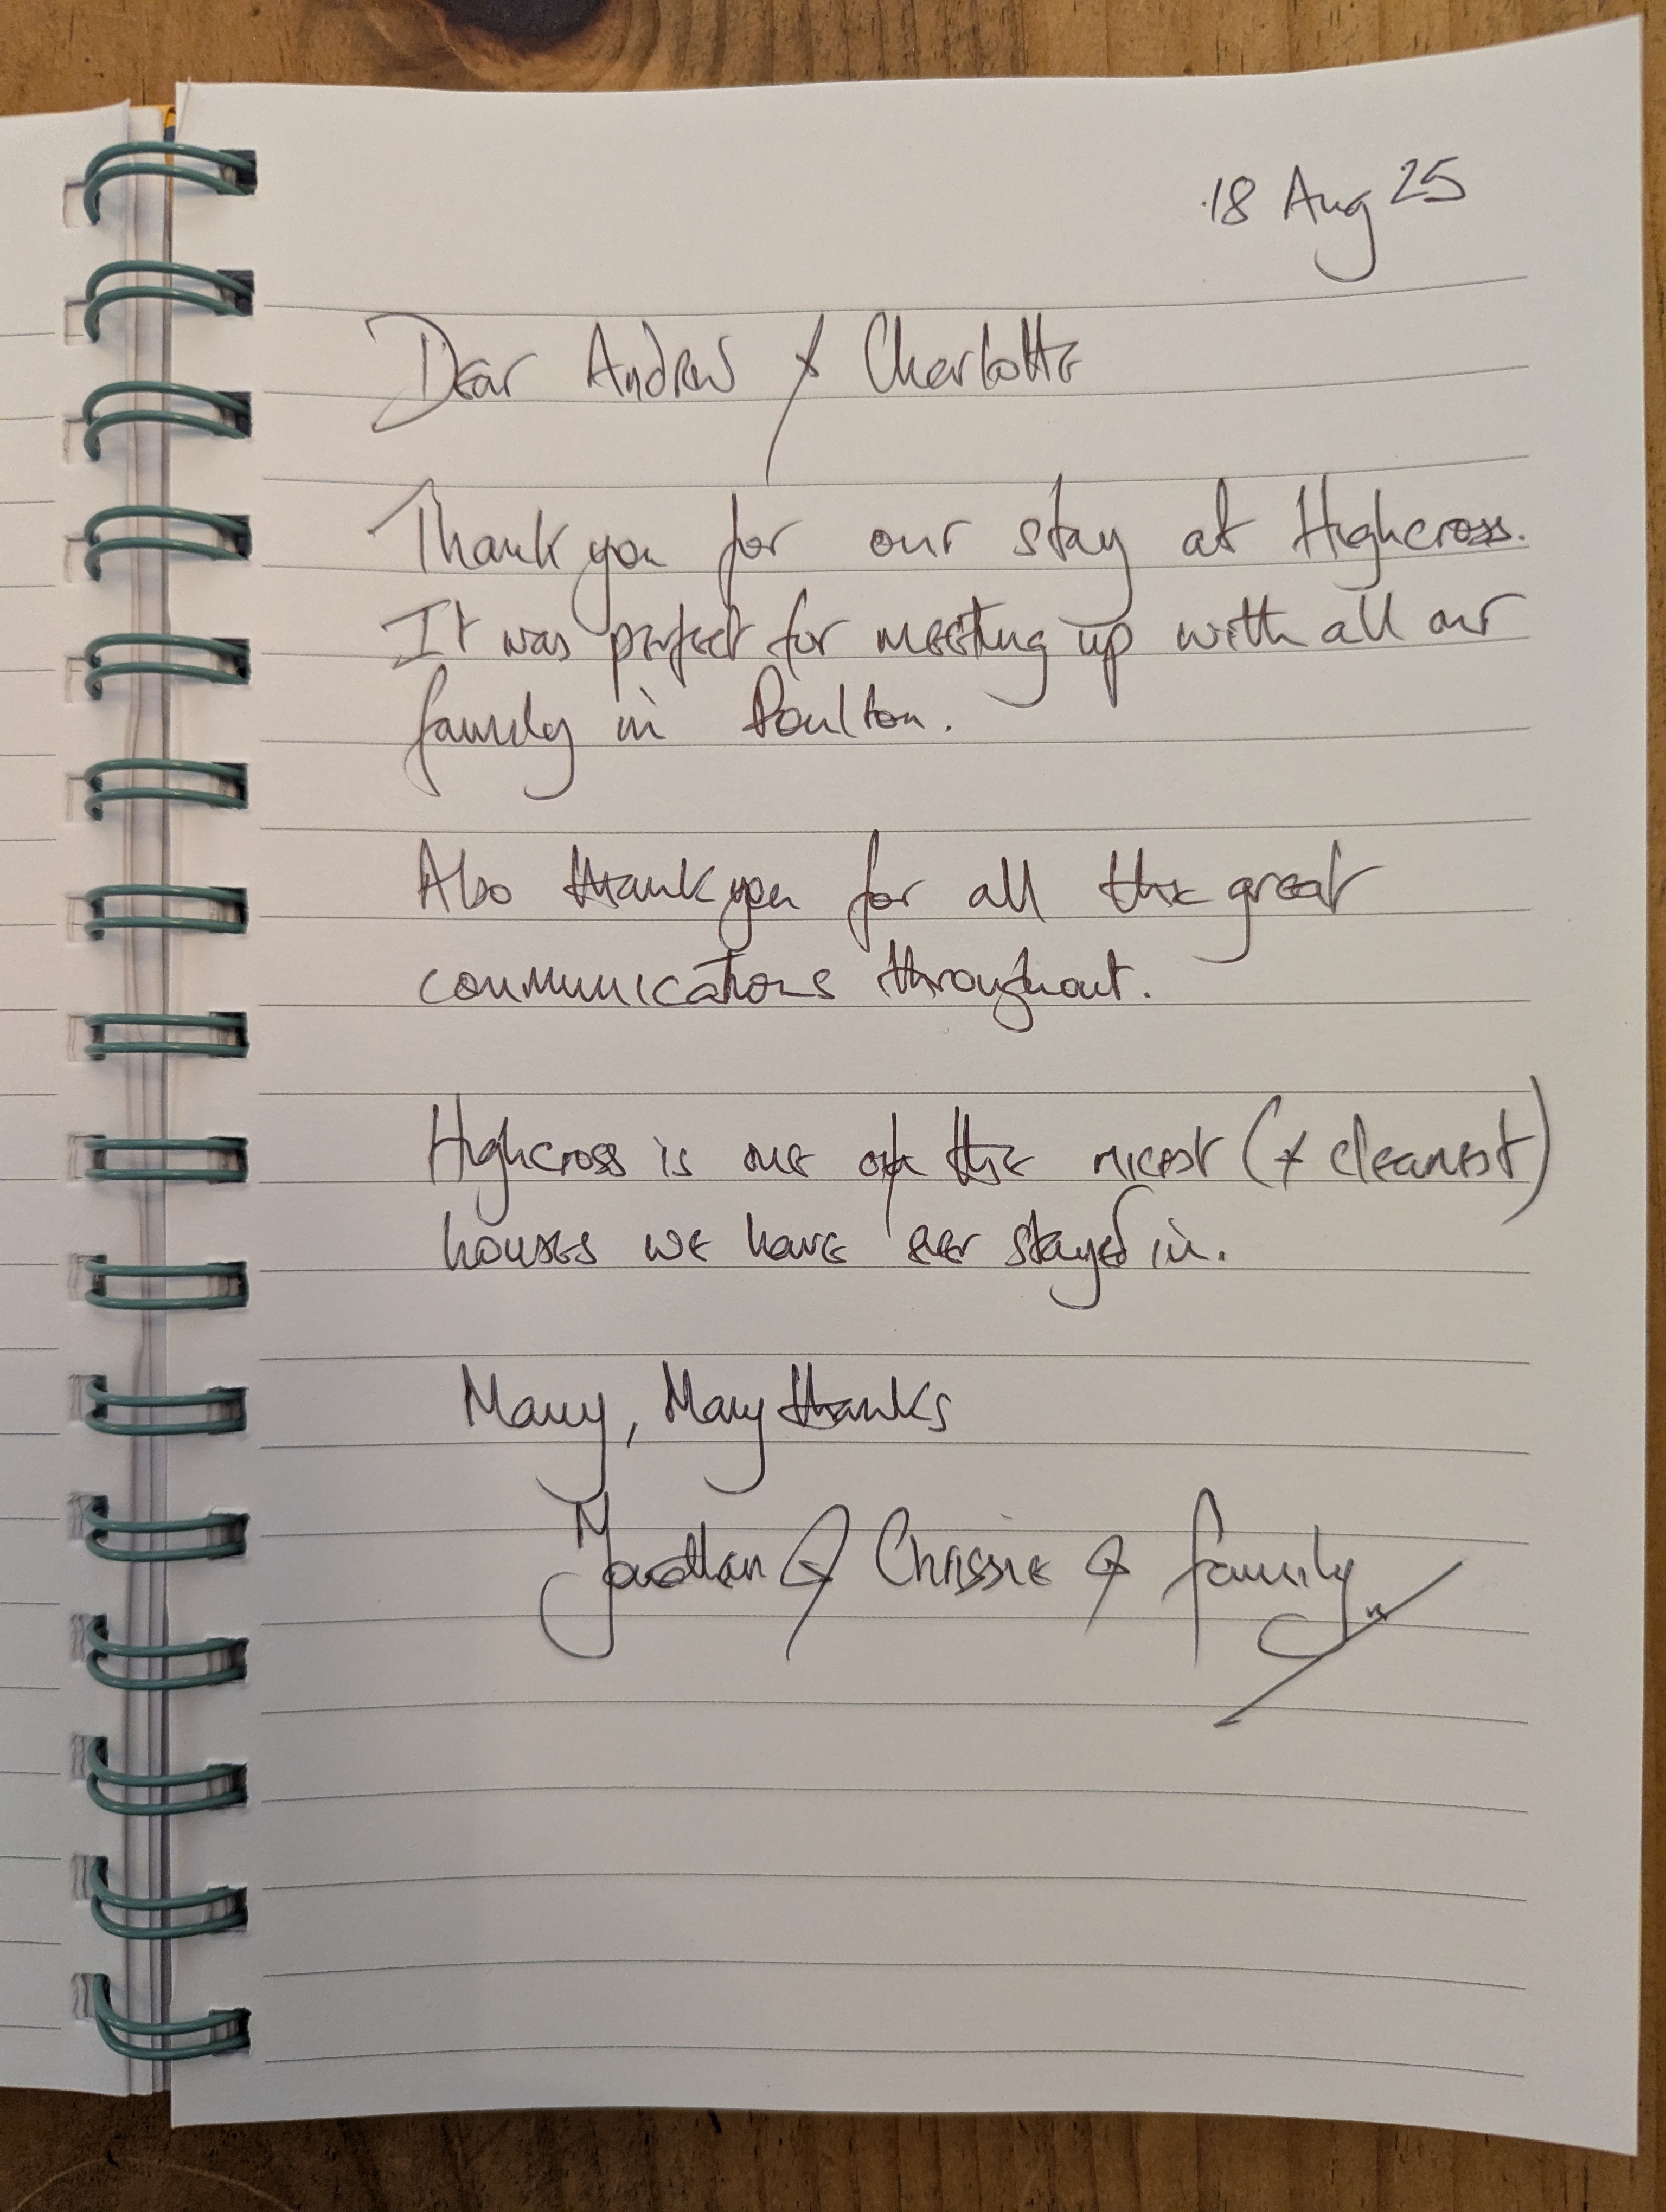 18 Aug 25
Dear Andrew & Charlotte
Thank you for our stay at Highcross.
It was perfect for meeting up with all our
family in Poulton.
Also thank you for all the great
communications throughout.
Highcross is one of the nicest (& cleanest)
houses we have ever stayed in.
Many, Many thanks
Jonathan & Chrissie & family